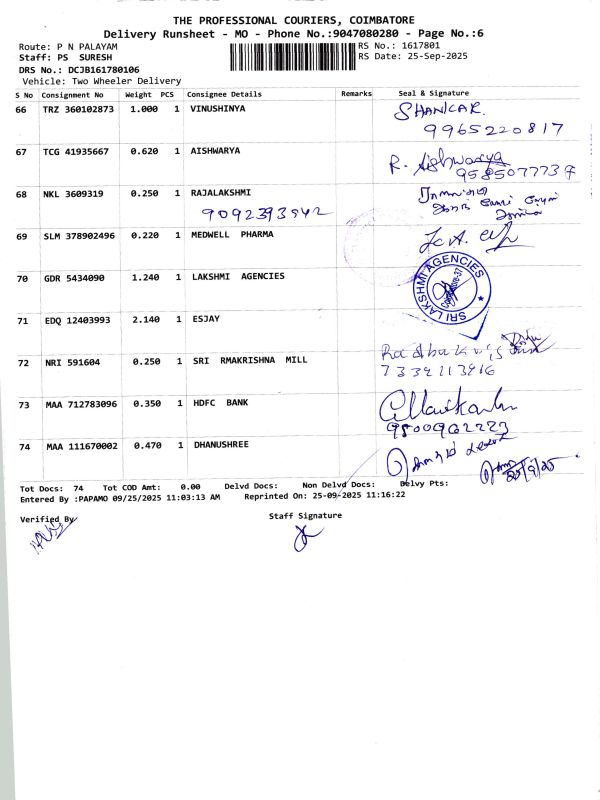 THE PROFESSIONAL COURIERS, COIMBATORE
Delivery Runsheet - MO - Phone No.:9047080280 - Page No.:6
Route: P N PALAYAM
RS No.: 1617801
Staff: PS SURESH
RS Date: 25-Sep-2025
DRS No.: DCJB161780106
Vehicle: Two Wheeler Delivery
S No Consignment No Weight PCS Consignee Details Remarks Seal & Signature
66 TRZ 360102873 1.000 1 VINUSHINYA SHANKAR.
9965220817
67 TCG 41935667 0.620 1 AISHWARYA R. Aishwarya
9585077737
68 NKL 3609319 0.250 1 RAJALAKSHMI
9092393942
69 SLM 378902496 0.220 1 MEDWELL PHARMA
70 GDR 5434090 1.240 1 LAKSHMI AGENCIES SRI LAKSHMI AGENCIES
Coimbatore-37
71 EDQ 12403993 2.140 1 ESJAY
72 NRI 591604 0.250 1 SRI RMAKRISHNA MILL
7339113916
73 MAA 712783096 0.350 1 HDFC BANK
9500902223
74 MAA 111670002 0.470 1 DHANUSHREE
25/9/25
Tot Docs: 74 Tot COD Amt: 0.00 Delvd Docs: Non Delvd Docs: Delvy Pts:
Entered By :PAPAMO 09/25/2025 11:03:13 AM Reprinted On: 25-09-2025 11:16:22
Verified By Staff Signature